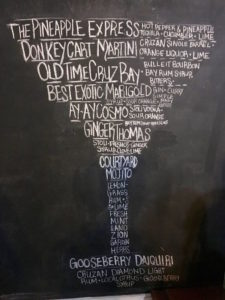 THE PINEAPPLE EXPRESS HOT PEPPER & PINEAPPLE
TEQUILA - CUCUMBER - LIME
DONKEY CART MARTINI CRUZAN SINGLE BARREL -
ORANGE LIQUOR - LIME
OLD TIME CRUZ BAY BULLEIT BOURBON
- BAY RUM SYRUP
BITTERS
BEST EXOTIC MARIGOLD GIN - 
AY-AY COSMO STOLI
SOUR ORANGE
GINGER THOMAS
STOLI -
LIME
COURTYARD
MOJITO
LEMON-
GRASS
RUM -
LIME
FRESH
MINT
LAND
ZION
GARDEN
HERBS
GOOSEBERRY DAIQUIRI
CRUZAN DIAMOND LIGHT
RUM - LOCAL CITRUS - GOOSEBERRY
SYRUP